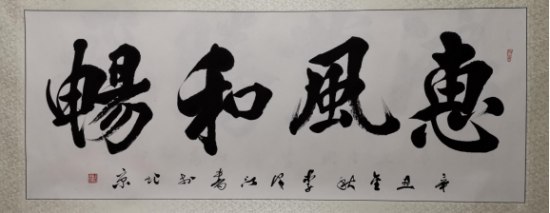 惠風和暢
辛丑金秋李書於北京